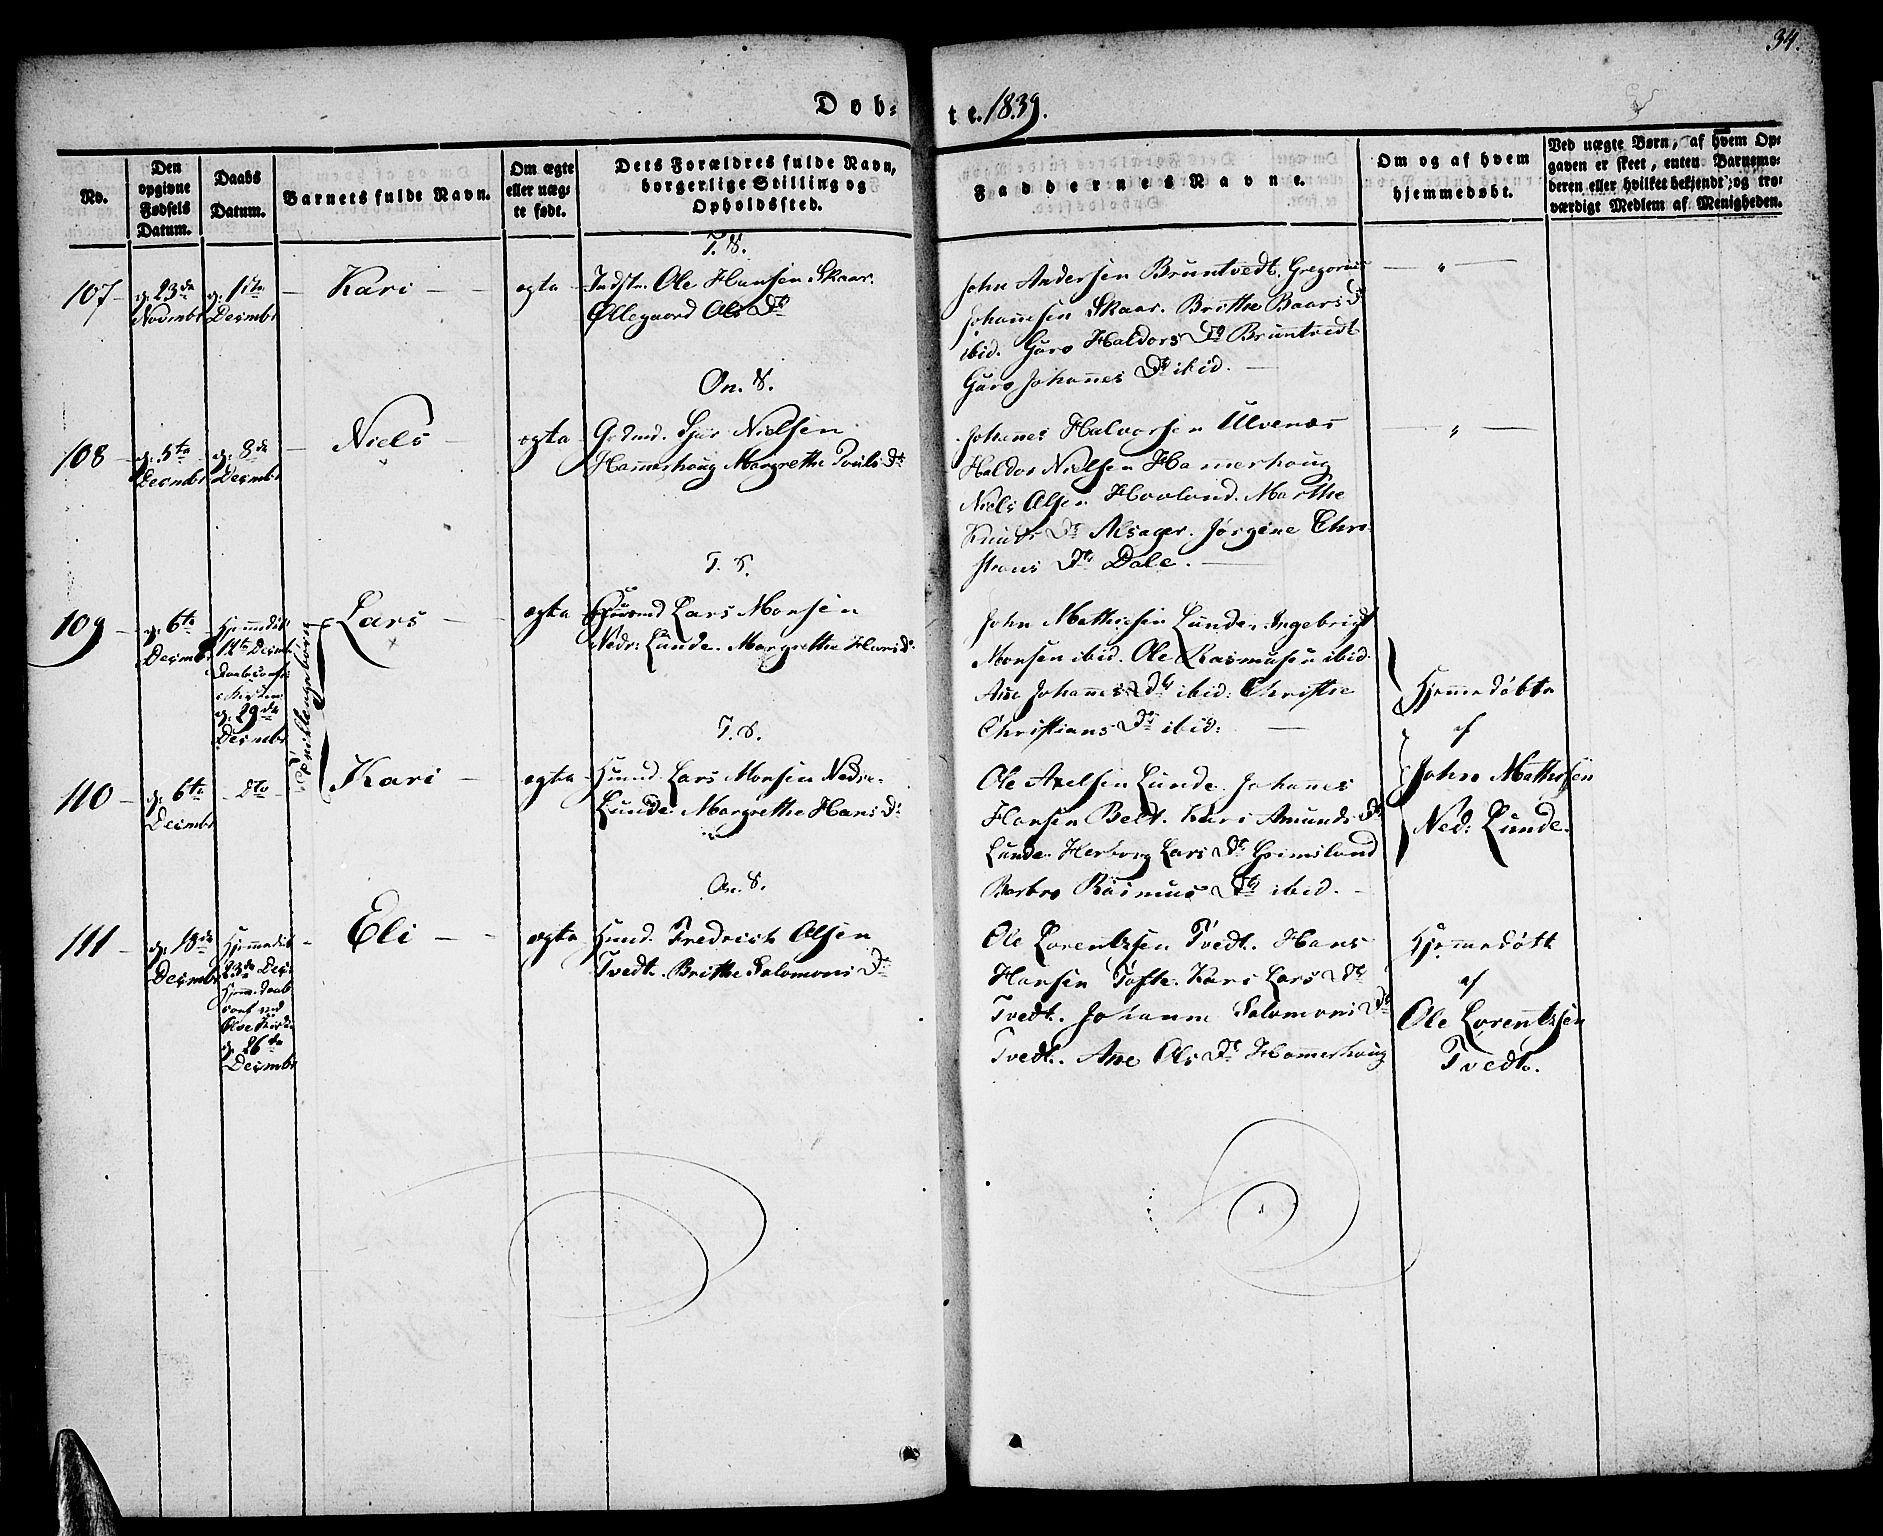 34.
Døb-
te. 1839.
No.
Den opgivne Fødsels Datum.
Daabs Datum.
Barnets fulde Navn.
Om ægte eller uægte født.
Dets Forældres fulde Navn, borgerlige Stilling og Opholdssted.
Faddernes Navne.
Om og af hvem hjemmedøbt.
Ved uægte Børn, af hvem Opgaven er skeet, enten Barnemoderen eller hvilket bekjendt og troværdigt Medlem af Menigheden.
T. S.
107
d: 23de Novmbr
d: 1ste Decmbr
Kari
ægte
Indstr. Ole Hansen Skaar.
Øllegaard Ols Dtr
John Andersen Bruntvedt. Gregorius
Johannesen Skaar. Brithe Baars Dtr
ibid. Guro Haldors Dtr Bruntvedt
Guro Johannes Dtr ibid.
On. S.
108
d: 5te Decmbr
d: 8de Decmbr
Niels
ægte
Nielsen
Hammerhoug Margrethe Dtr
Johannes Halvorsen Ulvenæs
Haldor Nielsen Hammerhoug
Niels Olsen Hovland. Marthe
Knuds Dtr Alsager. Jørgine Chri-
stians Dtr Dale.
T. S.
109
d: 6te Decmbr
Hjemmedøbt
14de Decmbr
d: 29de
Decmbr
Lars
ægte
Lars Monsen
Nedr: Lunde. Margrethe Hans Dtr
John Mathiesen Lunde. Ingebrigt
Monsen ibid. Ole Rasmusen ibid.
Ane Johannes Dtr ibid: Christie
Christians Dtr ibid:
Hjemmedøbte
af
John Mathiesen
Ned: Lunde.
Tvillingebörn
T. S.
110
d: 6te Decmbr
Dto
Kari
ægte
Huusmd Lars Monsen Nedre
Lunde Margrethe Hans Dtr
Ole Axelsen Lunde. Johannes
Hansen Belt. Kari Amunds Dtr
Lunde. Herborg Lars Dtr Grimsland
Barbro Rasmus Dtr ibid.
On. S.
111
d: 18de Decmbr
Hjemmedøbt
23de Decr
d: 26de
Decmbr
Eli
ægte
Huusmd. Fredrich Olsen
Tvedt. Brithe Salomons Dtr
Ole Lorentzsen Tvedt. Hans
Hansen Tofte. Kari Lars Dtr
Tvedt. Johanne Salomons Dtr
Tvedt. Ane Ols Dtr Hammerhoug
Hjemmedøbt
af
Ole Lorentzsen
Tvedt.